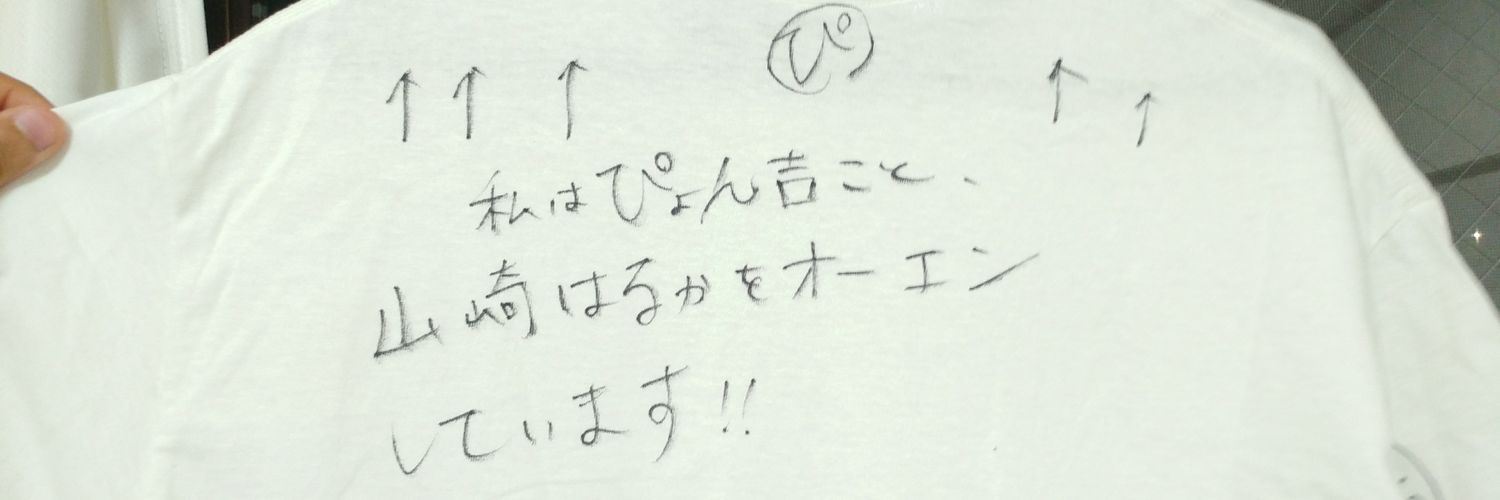 ぴ
↑↑↑ ↑↑
私はぴょん吉こと、
山崎はるかをオーエン
しています!!